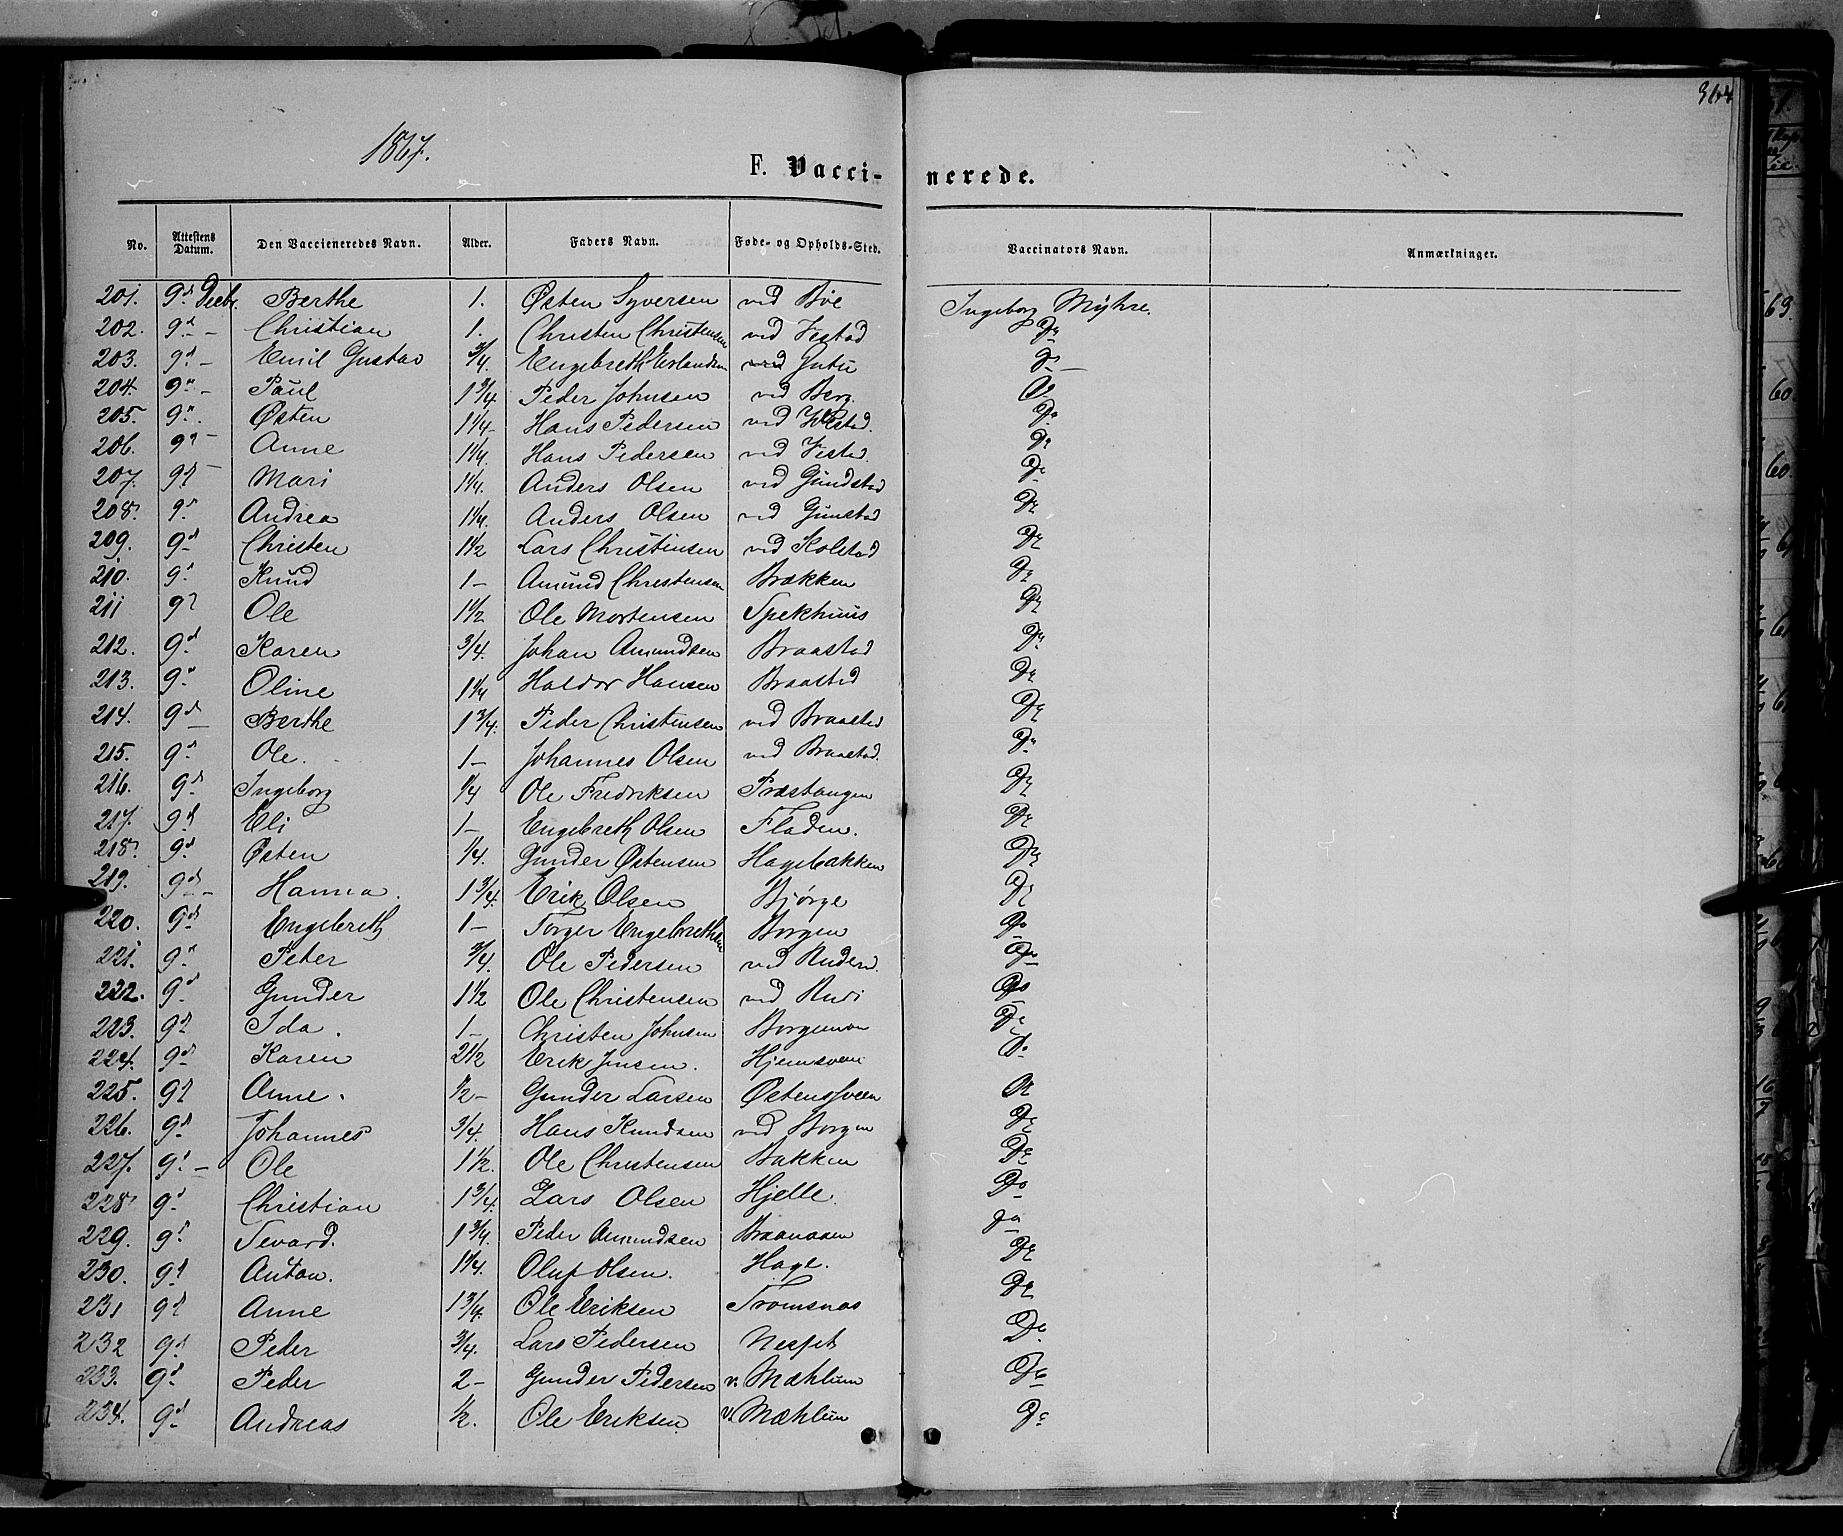 364
1867.
F. Vaccinerede.
No. Attestens Datum. Den Vaccieneredes Navn. Alder. Faders Navn. Føde- og Opholds-Sted. Vaccinators Navn. Anmærkninger.
201. 9d Decbr. Berthe 1. Østen Syversen ved Bøe Ingeborg Myhre.
202. 9d - Christian 1. Christen Christensen ved Vestad Do
203. 9d - Emil Gustav 3/4 Engebreth Erlandsen ved Do
204. 9d - Paul 1 3/4 Peder Johnsen ved Berg. Do
205. 9d Østen 1 1/4 Hans Pedersen ved Vestad. Do
206. 9d - Anne 1 1/4. Hans Pedersen ved Vestad. Do
207. 9d - Mari 1 1/4. Anders Olsen ved Gundstad Do
208. 9d Andrea 1 1/4. Anders Olsen ved Gunstad Do
209. 9d Christen 1 1/2 Lars Christensen ved Kolstad Do
210. 9d Knud 1- Amund Christensen Brækken Do
211 9d Ole 1 1/2 Ole Mortensen Spekhuus Do
212. 9d Karen 3/4. Johan Amundsen Braastad Do
213. 9d Oline 1 1/4 Haldor Hansen Braastad Do
214. 9d Berthe 1 3/4. Peder Christensen ved Braastad Do
215. 9d Ole. 1- Johannes Olsen ved Braastad. Do
216. 9d Ingeborg 1/4 Ole Fredriksen Præstangen Do
217. 9d Eli 1- Engebreth Olsen Fladen. Do
218. 9d Østen 1/4. Gunder Østensen Hagebakken Do
219. 9d Hanna. 1 3/4. Erik Olsen Bjørge Do
220. 9d Engebreth 1- Torger Engebrethsen Borgen Do
221. 9d Peter 3/4. Ole Pedersen ved Do
222. 9d Gunder 1 1/2 Ole Christensen ved Rudi Do
223. 9d Ida. 1- Christen Johnsen Borgemoen Do
224. 9d Karen 2 1/2 Erik Jensen. Hjemsveen Do
225. 9d Anne. 1/2- Gunder Larsen Østenssveen Do
226. 9d Johannes 3/4. Hans Knudsen ved Borgen Do
227. 9d - Ole 1 1/2. Ole Christensen Bakken Do
228. 9d Christian 1 3/4. Lars Olsen Hjelle. Do
229. 9d Sevard. 1 3/4. Peder Amundsen Braanaaen Do
230. 9d Anton. 1 1/4. Oluf Olsen. Hage. Do
231 9d Anne 1 3/4. Ole Eriksen Tromsnæs Do
232 9d Peder 3/4. Lars Pedersen Nerset Do
233. 9d Peder 2- Gunder Pedersen v. Mæhlum Do
234. 9d Andreas 1/2. Ole Eriksen. v. Mæhlum Do